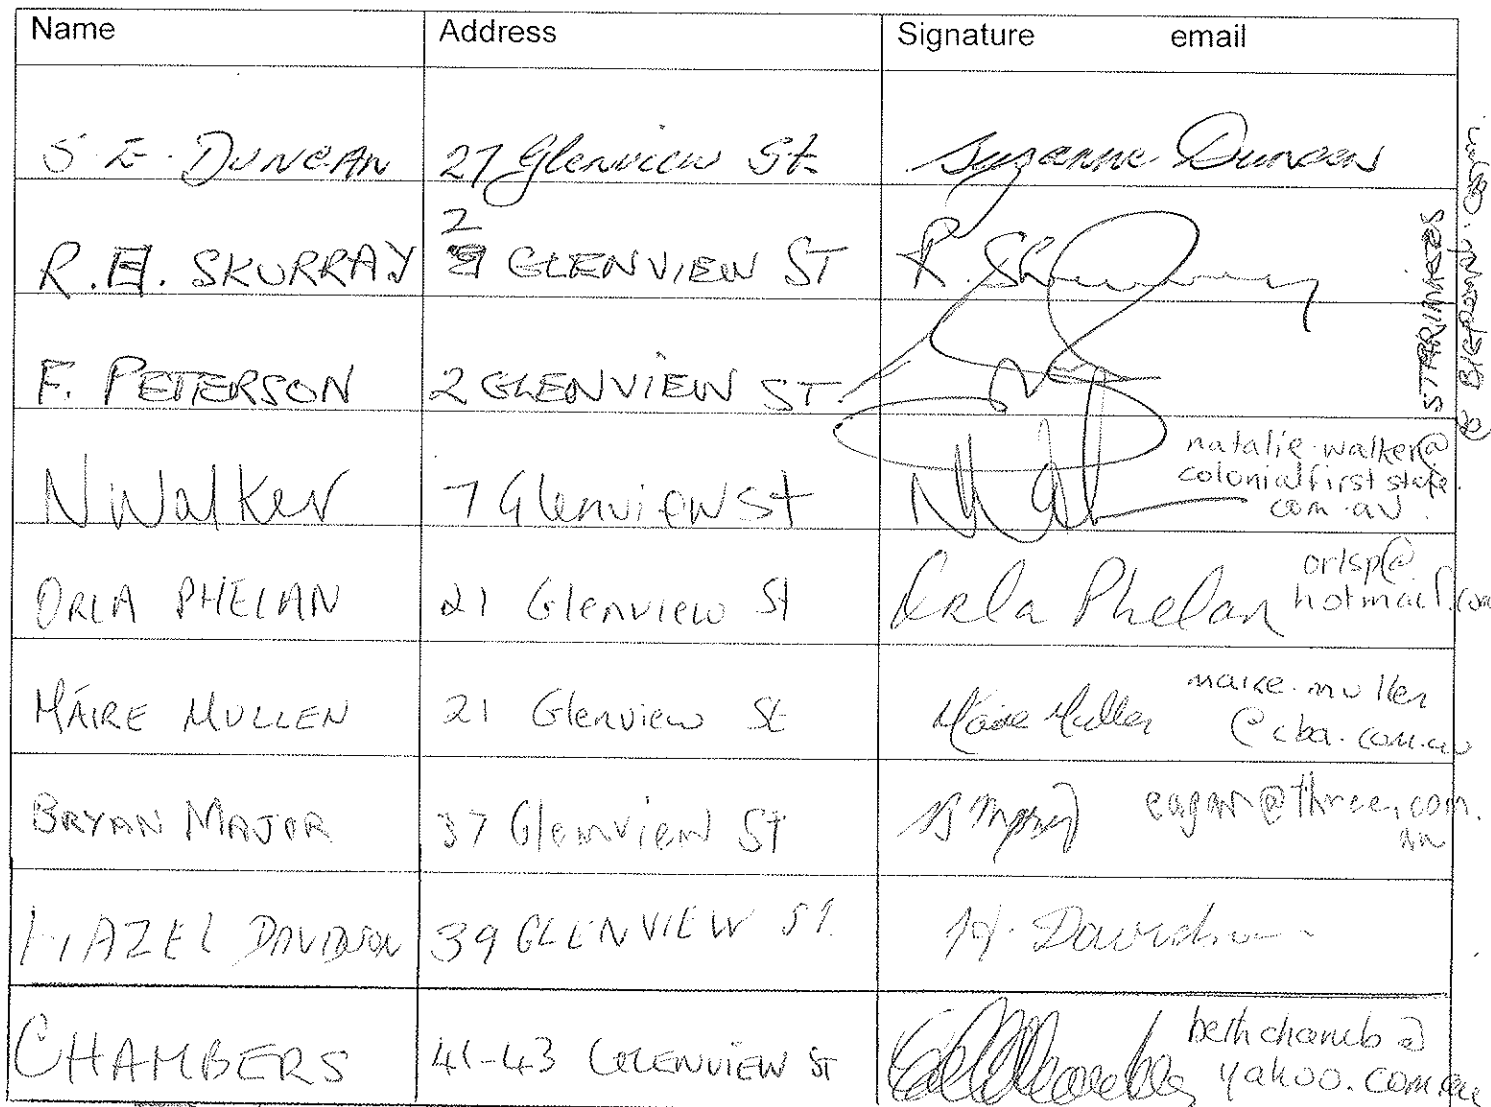 Name Address Signature email
S. E. DUNCAN 27 Glenview St Suzanne Duncan
R.E. SKURRAY 2 GLENVIEW ST R. Sk
F. PETERSON 2 GLENVIEW ST.
STARRMARES
@ BIGPOND
N Walker 7 Glenview St natalie.walker@
colonialfirststate.
com.au
ORLA PHELAN 21 Glenview St Orla Phelan orlsp@
hotmail.com
MÁIRE MULLEN 21 Glenview St Máire Mullen maire.mullen
@cba.com.au
BRYAN MAJOR 37 Glenview St B Major eagar@three.com.
au
HAZEL DAVIDSON 39 GLENVIEW ST. H. Davidson
CHAMBERS 41-43 GLENVIEW ST bethchamb@
yahoo.com.au